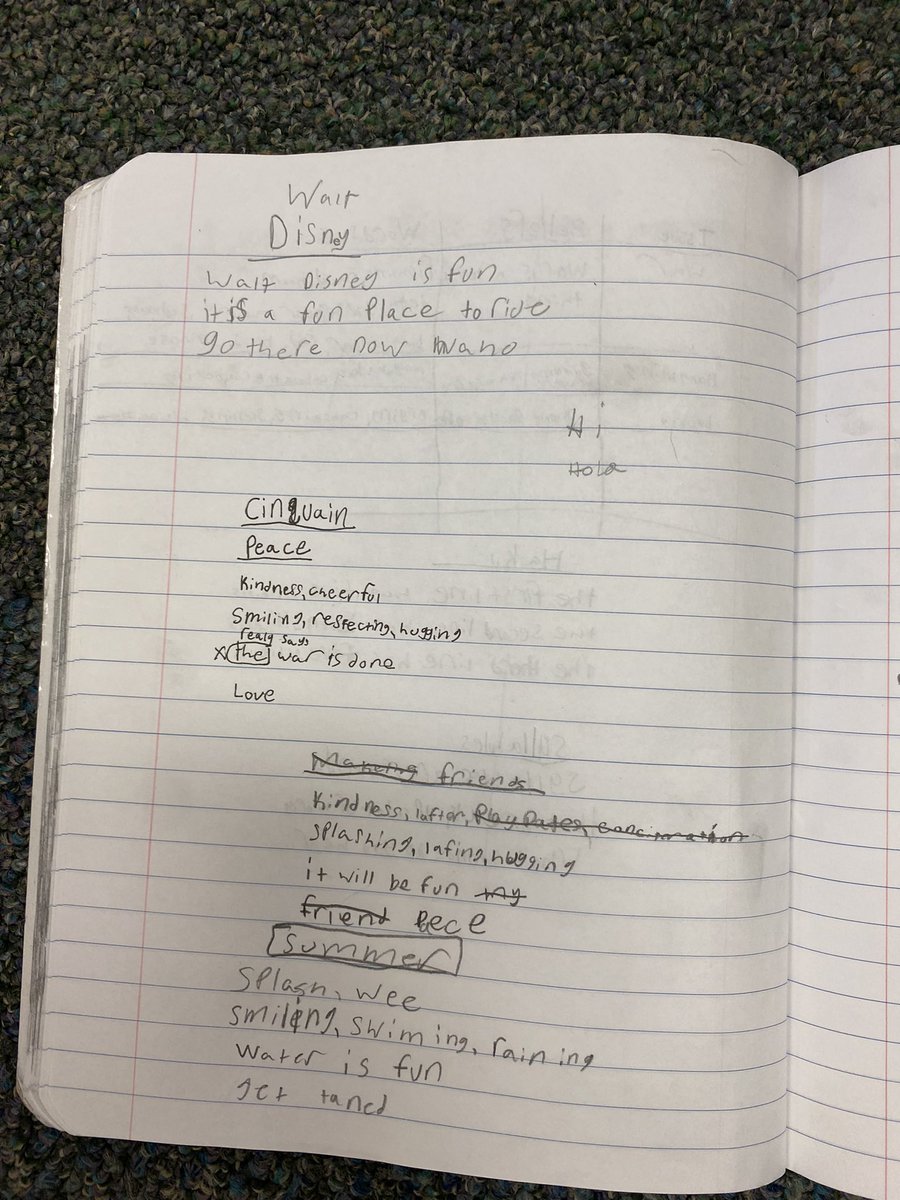 Walt
Disney
Walt Disney is fun
it is a fun Place to ride
go there now
Hi
Hola
Cinquain
Peace
Kindness, cheerful
Smiling, respecting, hugging
realy says
x [the] war is done
Love
Makeing friends
Kindness, lafter, Play Dates,
splashing, lafing, hugging
it will be fun my
friend pece
summer
Splash, wee
smiling, swiming, raining
Water is fun
get taned